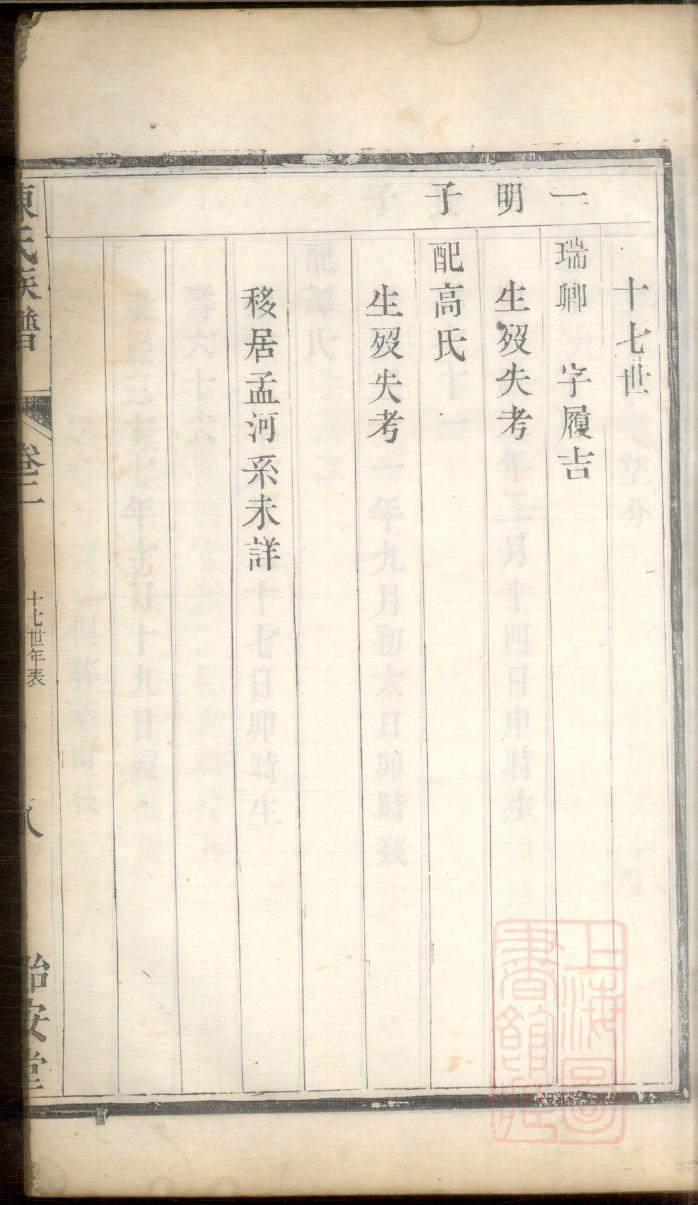 一明子
十七世
瑞卿 字履吉
生歿失考
配高氏
生歿失考
移居孟河系未詳
氏族譜
卷二
十七世年表
八
怡安堂
上海圖書館藏